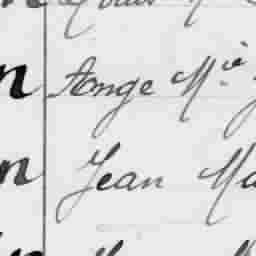 n Ange Mie
n Jean Ma